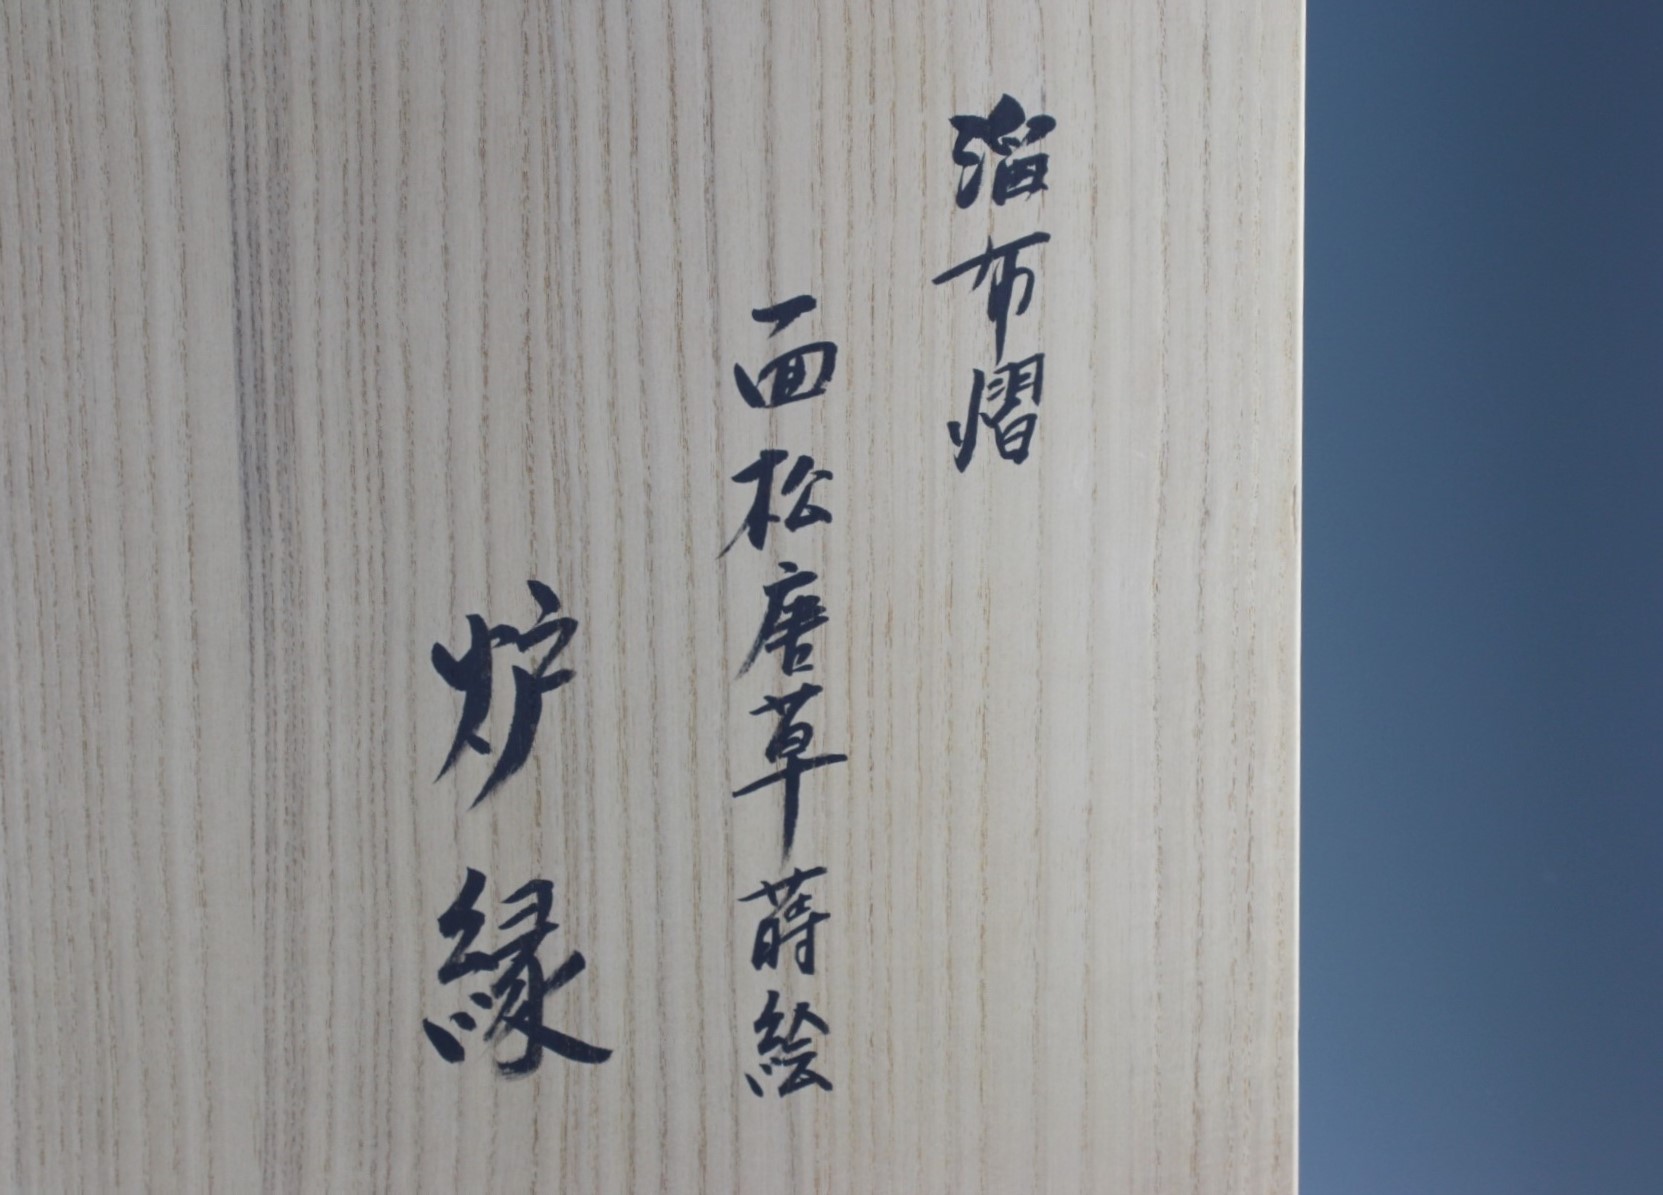 溜布熠
面松唐草蒔絵
炉縁